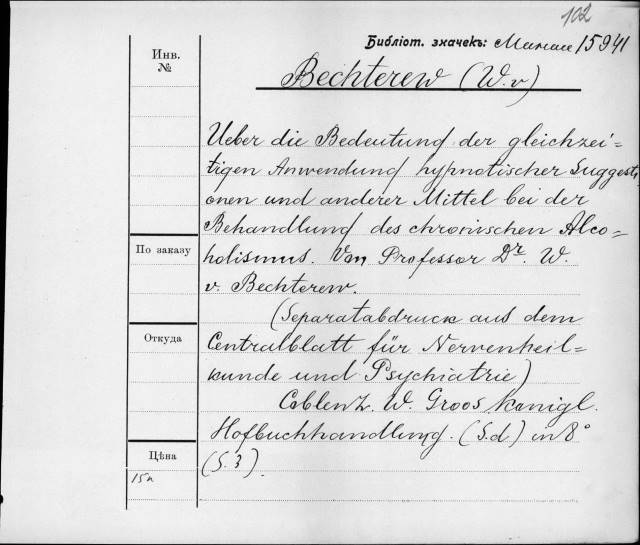 102
Библіот. значекъ: 15941
Инв.
№
Bechterew (W. v)
Ueber die Bedeutung der gleichzei=
tigen Anwendung hypnotischer Suggesti
onen und anderer Mittel bei der
Behandlung des chronischen Alco=
holismus. Von Professor Dr. W.
v. Bechterew.
По заказу
(Separatabdruck aus dem
Centralblatt für Nervenheil=
kunde und Psychiatrie)
Откуда
Coblenz. W. Groos Königl.
Hofbuchhandlung. (S.d) in 8°
(S. 3).
Цѣна
15к